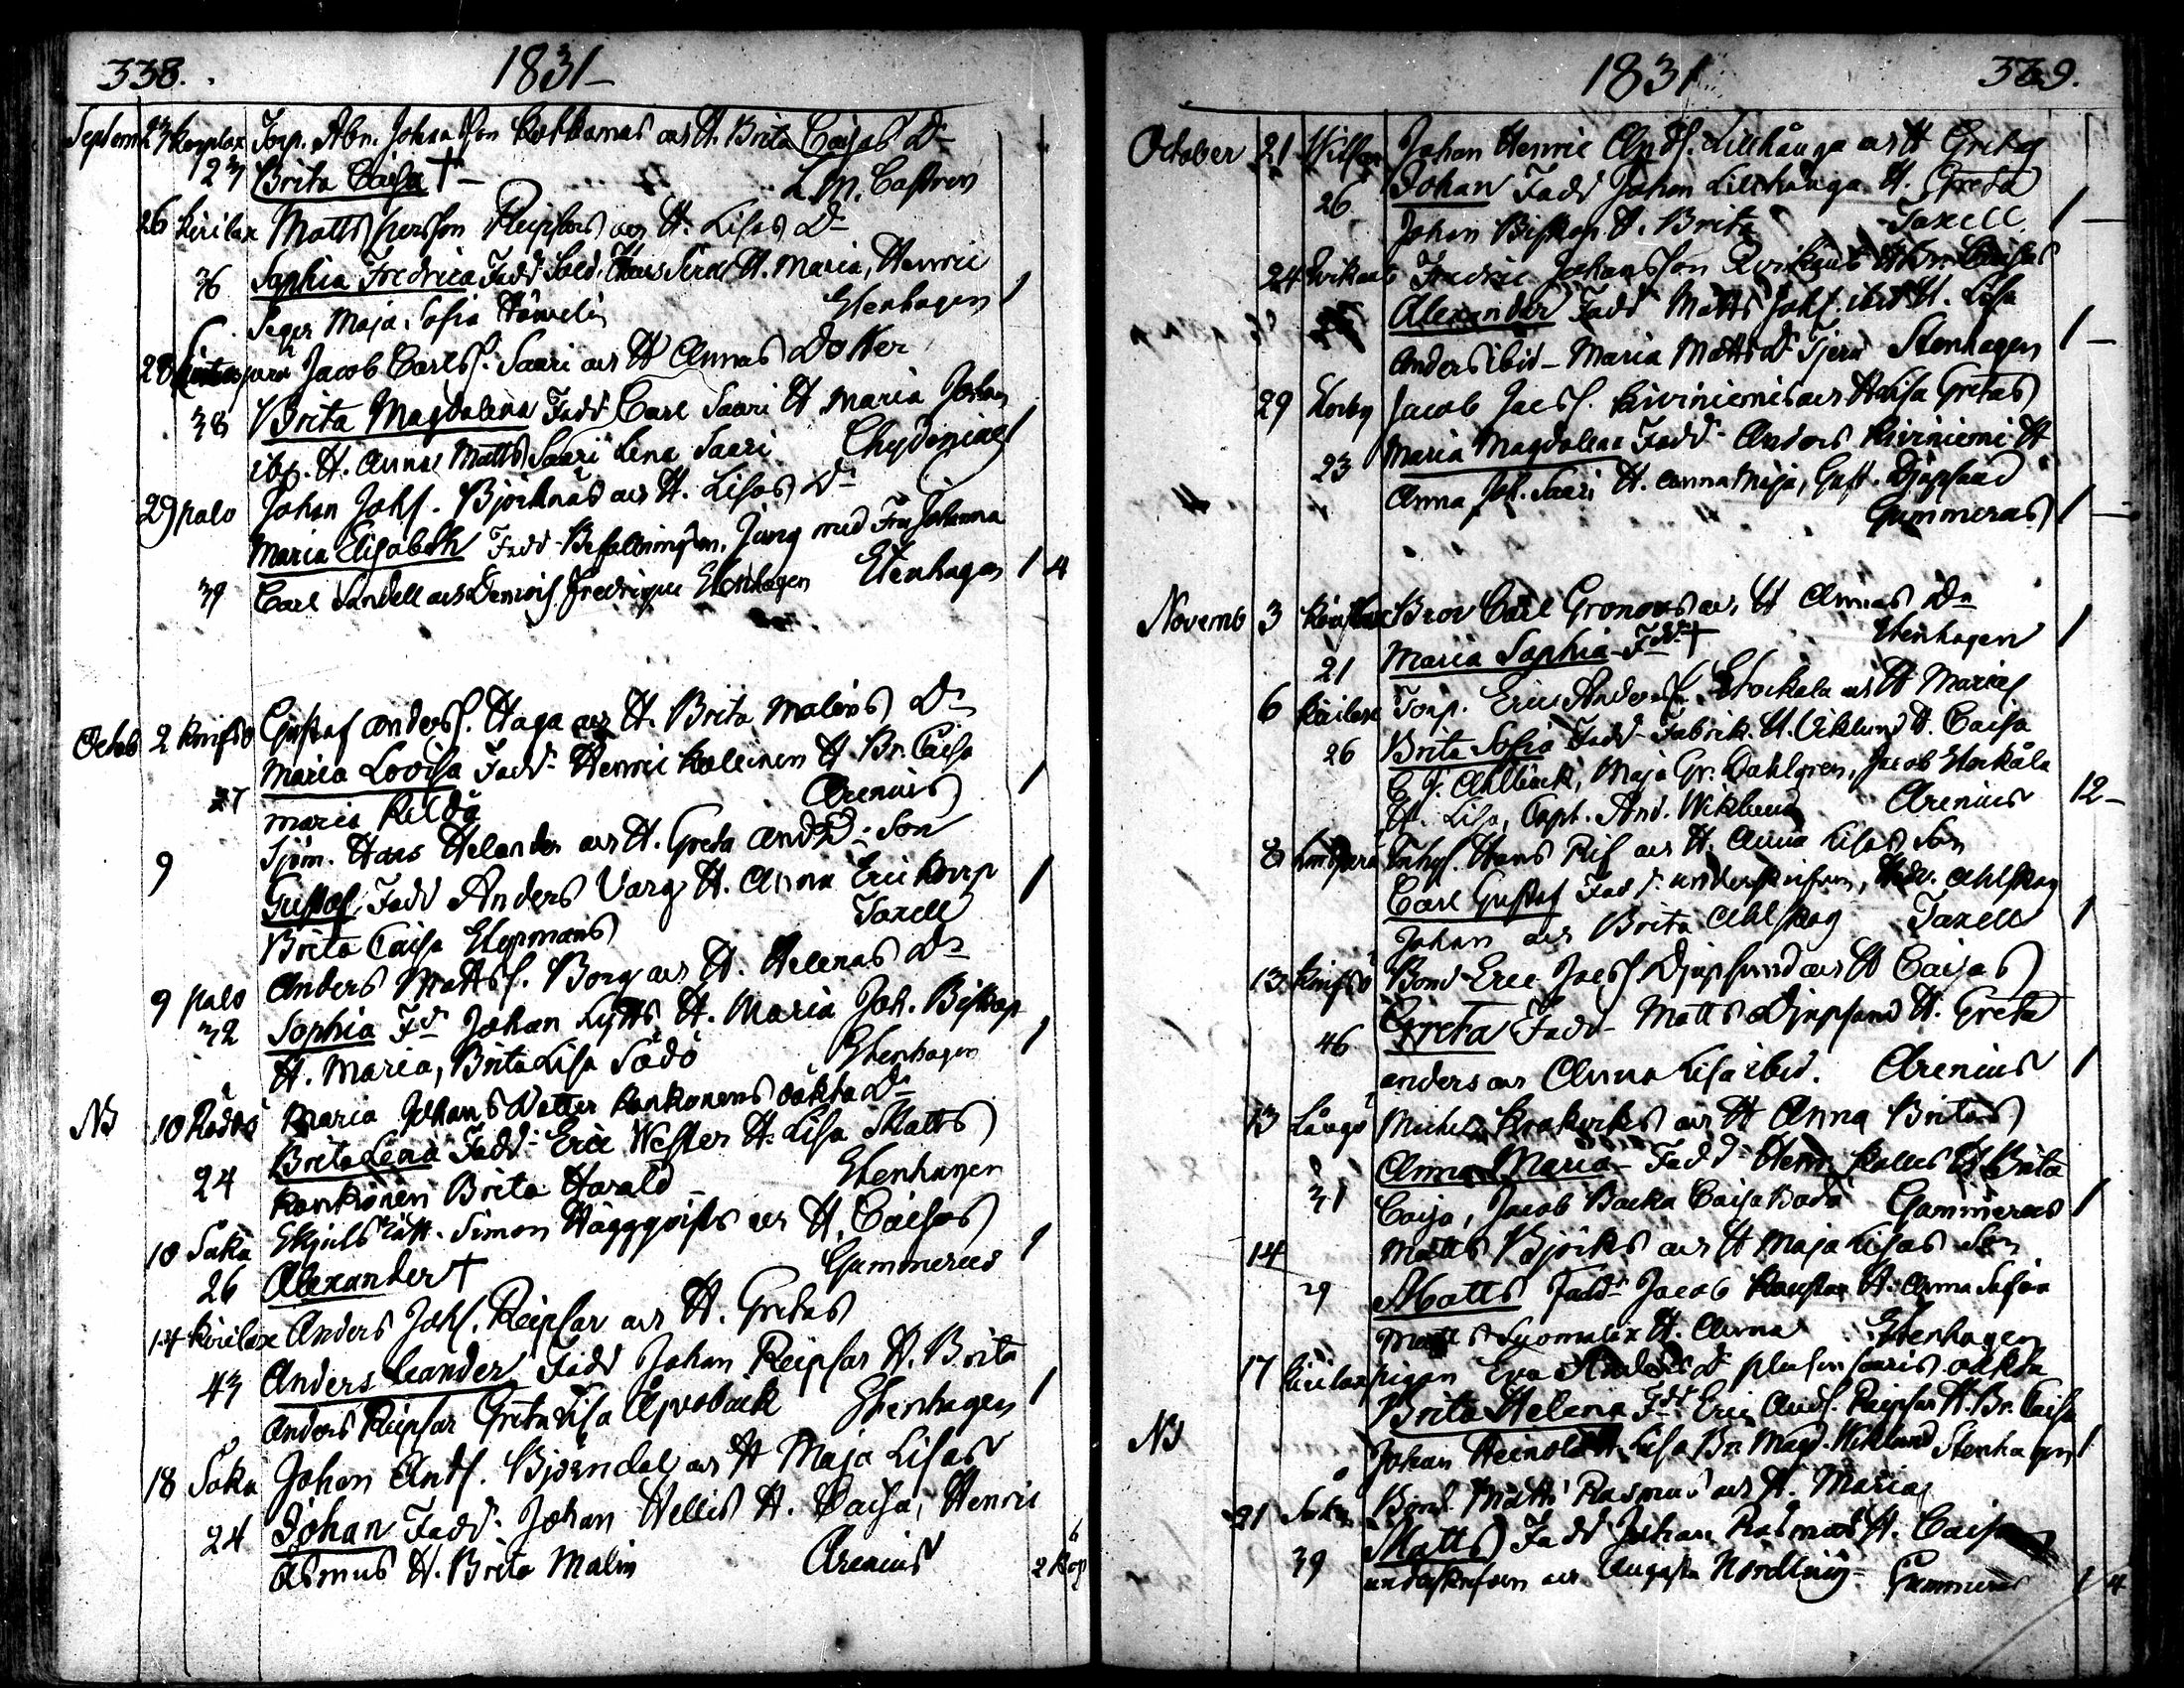 338.
1831
Septem 23 Torp. Abr. Johansson Kotkamas och H. Brita Caisas Dr
23 Brita Caisa † L. M. Castren
26 Kirilax Matts Persson Reipsars och H. Lisas Dr
36 Sophia Fredrica Fadd. Sold. Hans Serd H. Maria, Henric
Seger Maja Sofia Stenhagen 1
28 Jacob Carlss. Saari och H Annas Dotter
38 Brita Magdalena Fadd. Carl Saari H Maria Johan
ibd. H. Anna Matts Saari Lena Saari Chydenius 1
29 palo Johan Johss. Björknäs och H. Lisas Dr
Maria Elisabeth Fadd. Befallningsm. Jung med Fru Johanna
39 Carl Sandell och Demois. Fredrique Stenhagen Stenhagen 1 4
Octob 2 Knifsö Gustaf Anderss. Haga och H. Brita Malins Dr
Maria Lovisa Fadd. Henric Kalleinen H Br. Caisa
27 Maria Arenius 1
9 Sjöm. Hans Helander och H. Greta AndsDr Son
Gustaf Fadd Anders Varg H. Anna Eric Korp 1
Brita Caisa Taxell
9 palo Anders Mattss. Borg och H. Helenas Dr
32 Sophia Fdr Johan Lytts H. Maria Joh. Biskop
H. Maria, Brita Lisa Sådö Stenhagen 1
NB 10 Rödsö Maria Johans Dotter Kankonens oäkta Dr
Brita Lena Fadd. Eric Wester H. Lisa Matts
24 Kankonen Brita Harald Stenhagen
10 Såka Simon Häggqvists och H. Caisas
26 Alexander † Gummerus 1
14 Kirilax Anders Johss. Reipsar och H. Gretas
43 Anders Leander Fadd Johan Reipsar H. Brita
Anders Reipsar Greta Lisa Åsvoback Stenhagen 1
18 Såka Johan Andss. Björndal och H Maja Lisas
24 Johan Fadd. Johan Hellis H. Caisa, Henric
Asmus H. Brita Malin Arenius 2 kop 6
1831
339.
October 21 Johan Henric Andss. Lillhånga och H Gretas
26 Johan Fadd Johan Lillhånga H. Greta
Johan Biskop H. Brita Taxell. 1 —
24 Fredric Johansson H Br. Caisas
Alexander Fadd Matts Johss. ibid H. Lisa
Anders ibid — Maria MattsDr Stenhagen 1 —
29 Korby Jacob Jacss. Kiviniemis och H Caisa Gretas
23 Maria Magdalena Fadd. Anders Kiviniemi H
Anna Joh. Saari H. Anna Maja, Gust. Djupsund
Gummerus 1 —
Novemb 3 Carl Gronows och H Annas Dr
21 Maria Sophia Fdd † Stenhagen 1
6 Kirilax Torp. Eric Anderss. Storkåla och H Marias
26 Brita Sofia Fadd. Fabrik. H. Wiklund H. Caisa
C J. Ahlbäck, Maja Gr. Dahlgren, Jacob Storkåla
H. Lisa, Capt. And. Wiklund Arenius 12 —
8 Inhys. Hans Ris och H. Anna Lisas Son
Carl Gustaf Fadd: underskrifven, Ahlskog
Johan och Brita Ahlskog Taxell 1
13 Knifsö Bond Eric Jacss. Djupsund och H Caisas
46 Greta Fadd. Matts Djupsund H. Greta
Anders och Anna Lisa ibid. Arenius 1
13 Långö Michel Krokviks och H Anna Britas
Anna Maria Fadd. Henr. Kalles H Brita
31 Caisa, Jacob Backa Caisa Boda Gummerus 1
14 Matts Björks och H Maja Lisas Son
29 Matts Fadd. Jacob H. Anna Sofia
Matts H. Anna Stenhagen
17 Kirilax pigan Eva Anders Dr oäkta
NB Brita Helena Fdd Eric Andss. Reipsar H. Br. Caisa
Johan H. Lisa Br. Magd. Wiklund Stenhagen 1
21 Såka Bond. Matts Rasmus och H. Marias
39 Matts Fadd Johan Rasmus H. Caisa
underskrifven och Augusta Nordling Gummerus 1 4